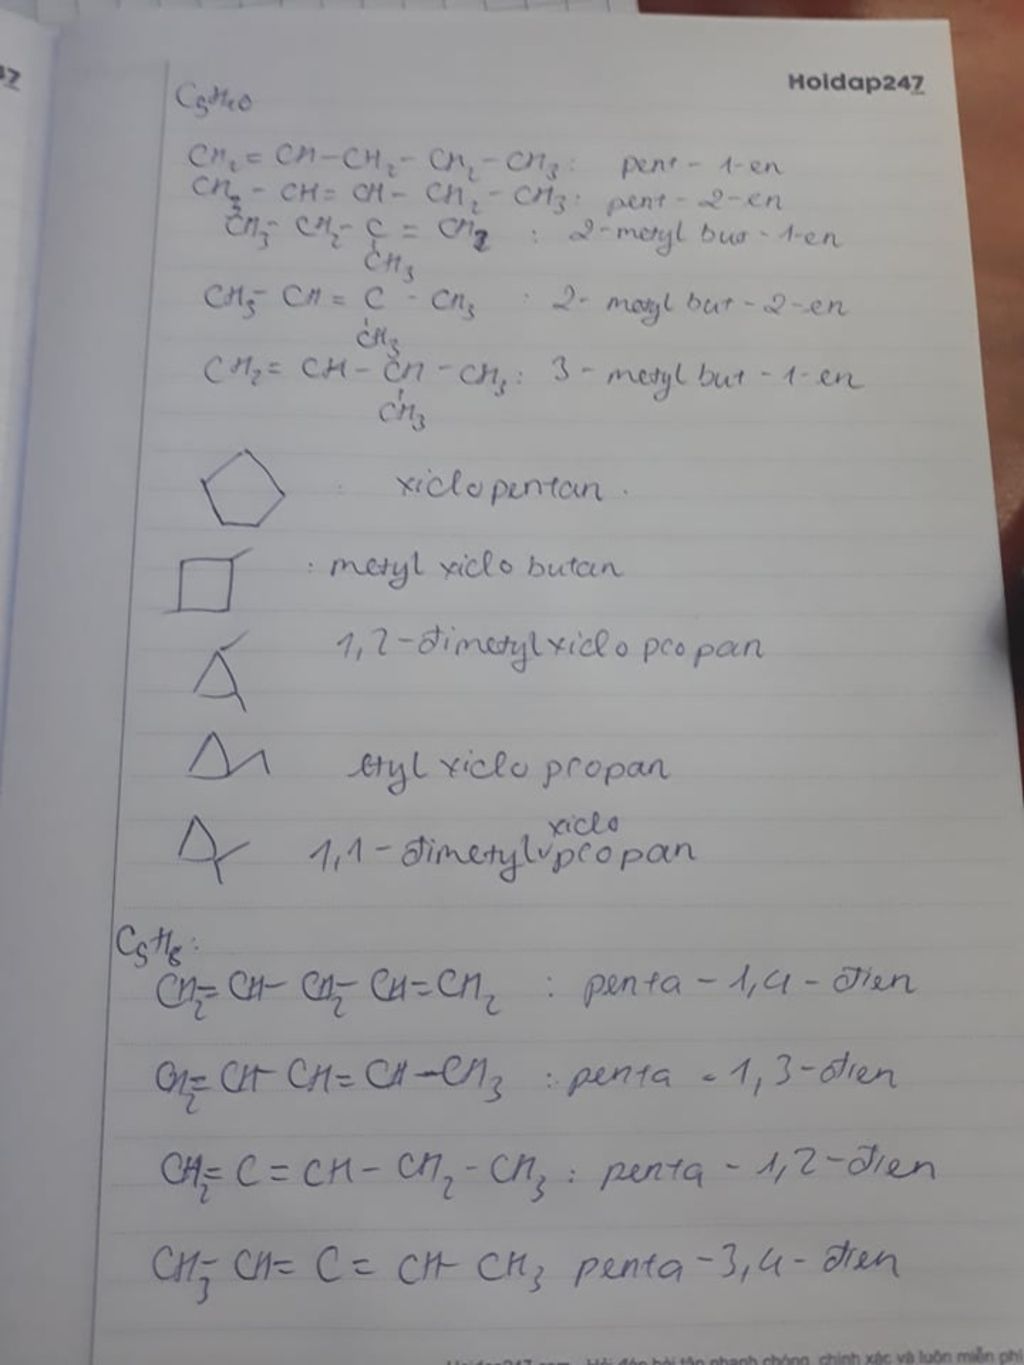 47
Hoidap247
C5H10
CH2 = CH-CH2- CH2-CH3: pent-1-en
CH3 - CH= CH- CH2-CH3: pent-2-en
CH3- CH2- C = CH2 : 2-metyl but-1-en
CH3
CH3- CH = C - CH3 : 2- metyl but-2-en
CH3
CH2= CH - CH - CH3: 3- metyl but-1-en
CH3
: xiclopentan.
: metyl xiclo butan
1,2-đimetylxiclo propan
etyl xiclo propan
xiclo
1,1-đimetylvpropan
C5H8:
CH2= CH- CH2- CH=CH2 : penta-1,4-đien
CH2= CH- CH= CH-CH3 : penta-1,3-đien
CH2= C = CH- CH2-CH3: penta-1,2-đien
CH3- CH= C = CH- CH3 penta-3,4-đien
chóng, chính xác và luôn miễn phí